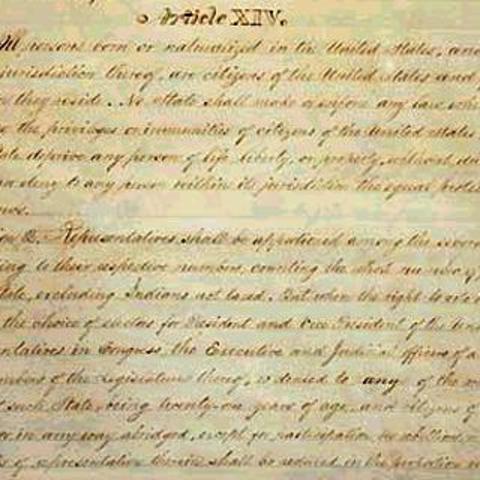 Article XIV.
All persons born or naturalized in the United States, and
jurisdiction thereof, are citizens of the United States and
they reside. No State shall make or enforce any law which
the privileges or immunities of citizens of the United States
deprive any person of life, liberty, or property, without du
deny to any person within its jurisdiction the equal protec
laws.
2. Representatives shall be apportioned among the severa
ing to their respective numbers, counting the whole number of
State, excluding Indians not taxed. But when the right to vote
the choice of electors for President and Vice President of the Uni
entatives in Congress, the Executive and Judicial officers of a
members of the Legislature thereof, is denied to any of the
of such State, being twenty-one years of age, and citizens of
or in any way abridged, except for participation in rebellion,
of representation therein shall be reduced in the proportion